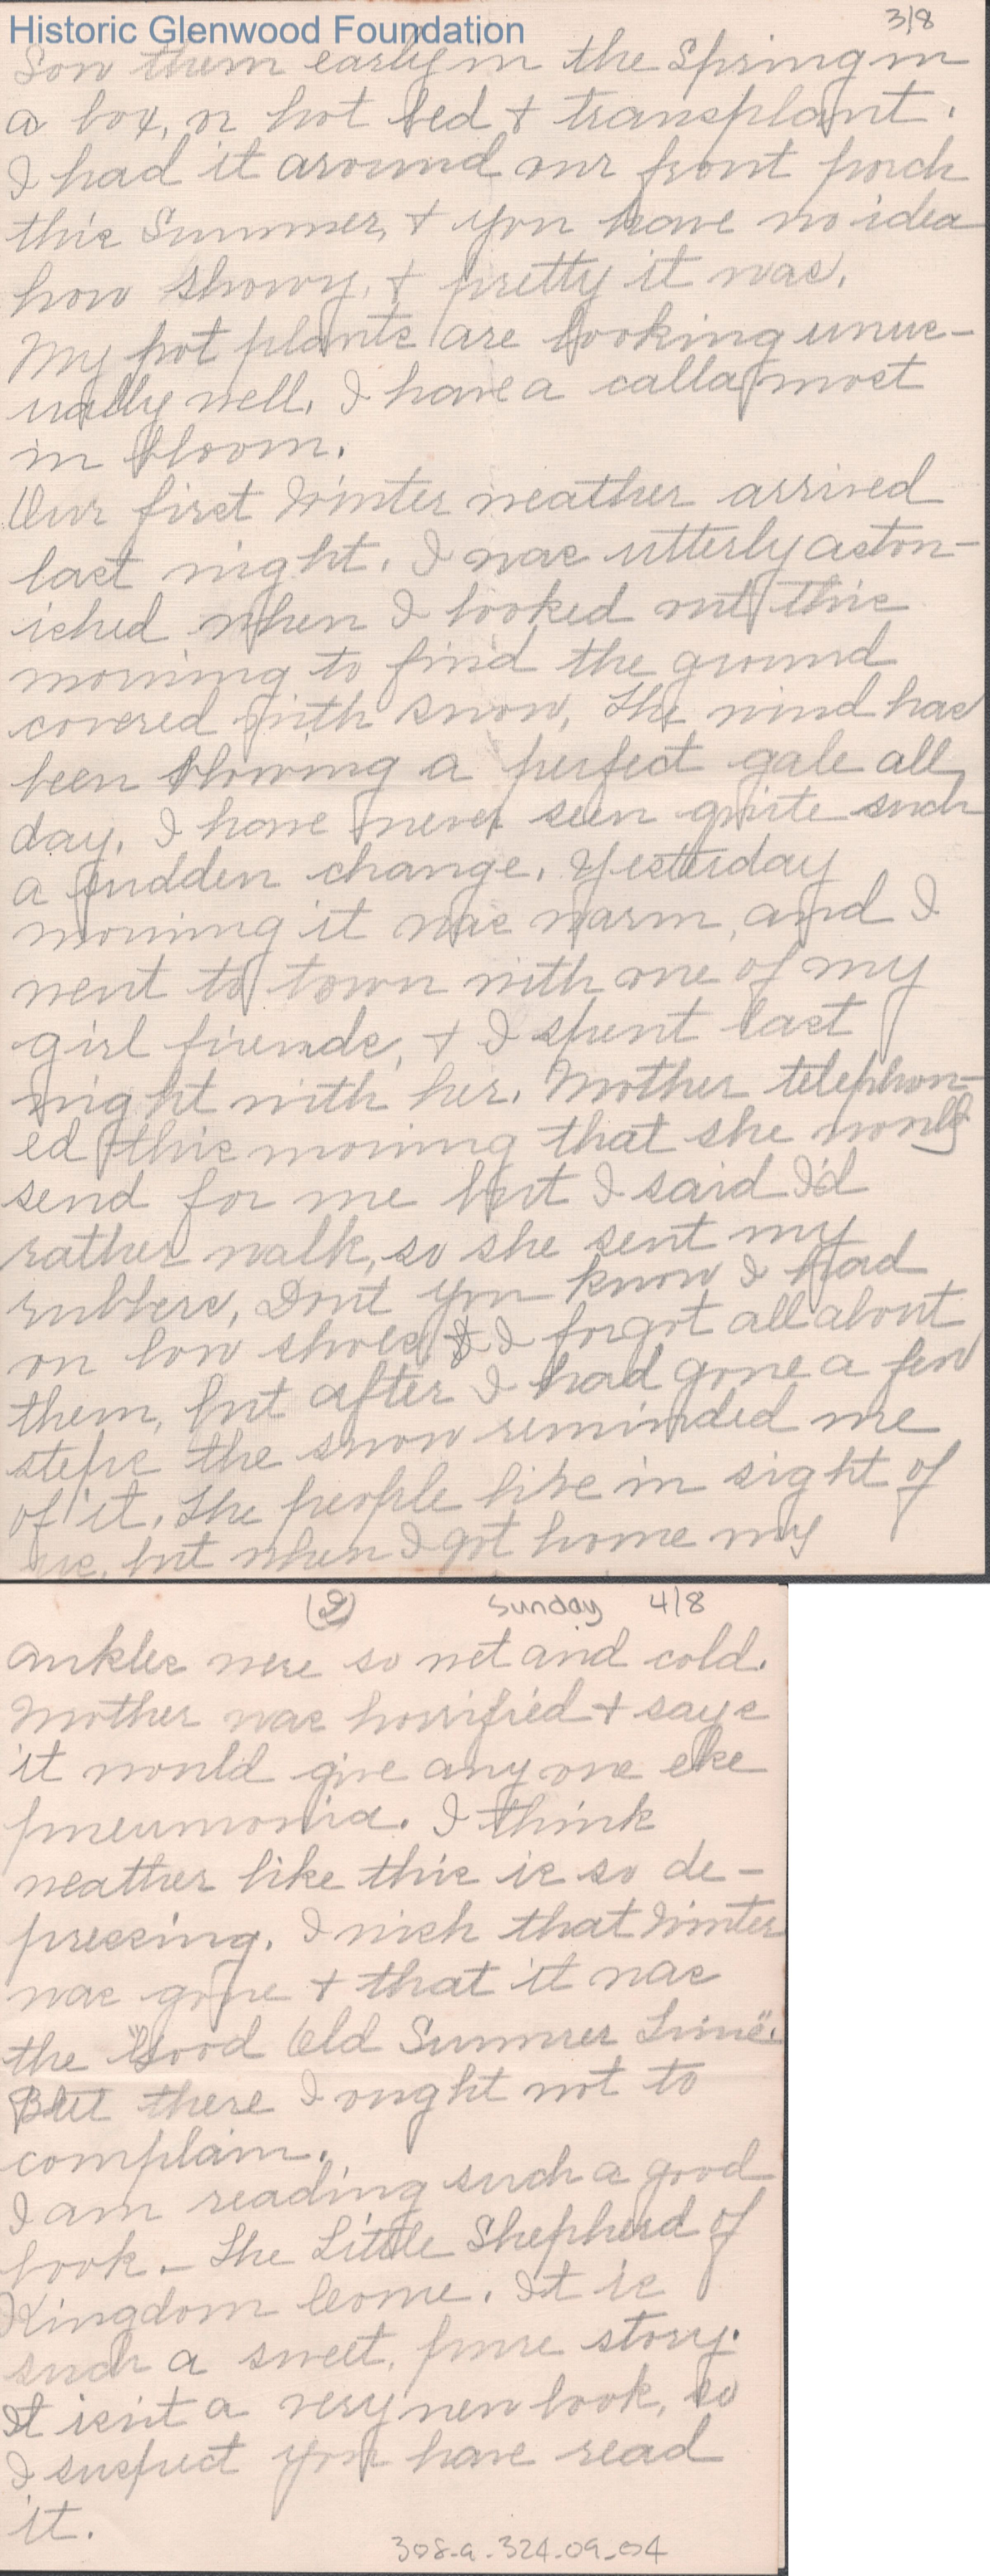 Historic Glenwood Foundation
3/8
Sow them early in the Spring in
a box, or hot bed + transplant.
I had it around our front porch
this Summer, + you have no idea
how showy, + pretty it was.
My pot plants are looking unus-
ually well. I have a calla most
in bloom.
Our first Winter weather arrived
last night. I was utterly aston-
ished when I looked out this
morning to find the ground
covered with snow, The wind has
been blowing a perfect gale all
day. I have never seen quite such
a sudden change. Yesterday
morning it was warm, and I
went to town with one of my
girl friends, + I spent last
night with her. Mother telephon-
ed this morning that she would
send for me but I said I'd
rather walk, so she sent my
rubbers, Dont you know I had
on low shoes, & I forgot all about
them, but after I had gone a few
steps the snow reminded me
of it. The people live in sight of
us, but when I got home my
(2) Sunday 4/8
ankles were so wet and cold.
Mother was horrified + says
it would give any one else
pneumonia. I think
weather like this is so de-
pressing. I wish that Winter
was gone + that it was
the "Good Old Summer Time".
But there I ought not to
complain.
I am reading such a good
book. - The Little Shepherd of
Kingdom Come. It is
such a sweet, pure story.
It isn't a very new book, so
I suspect you have read
it.
308-a-324-09-04